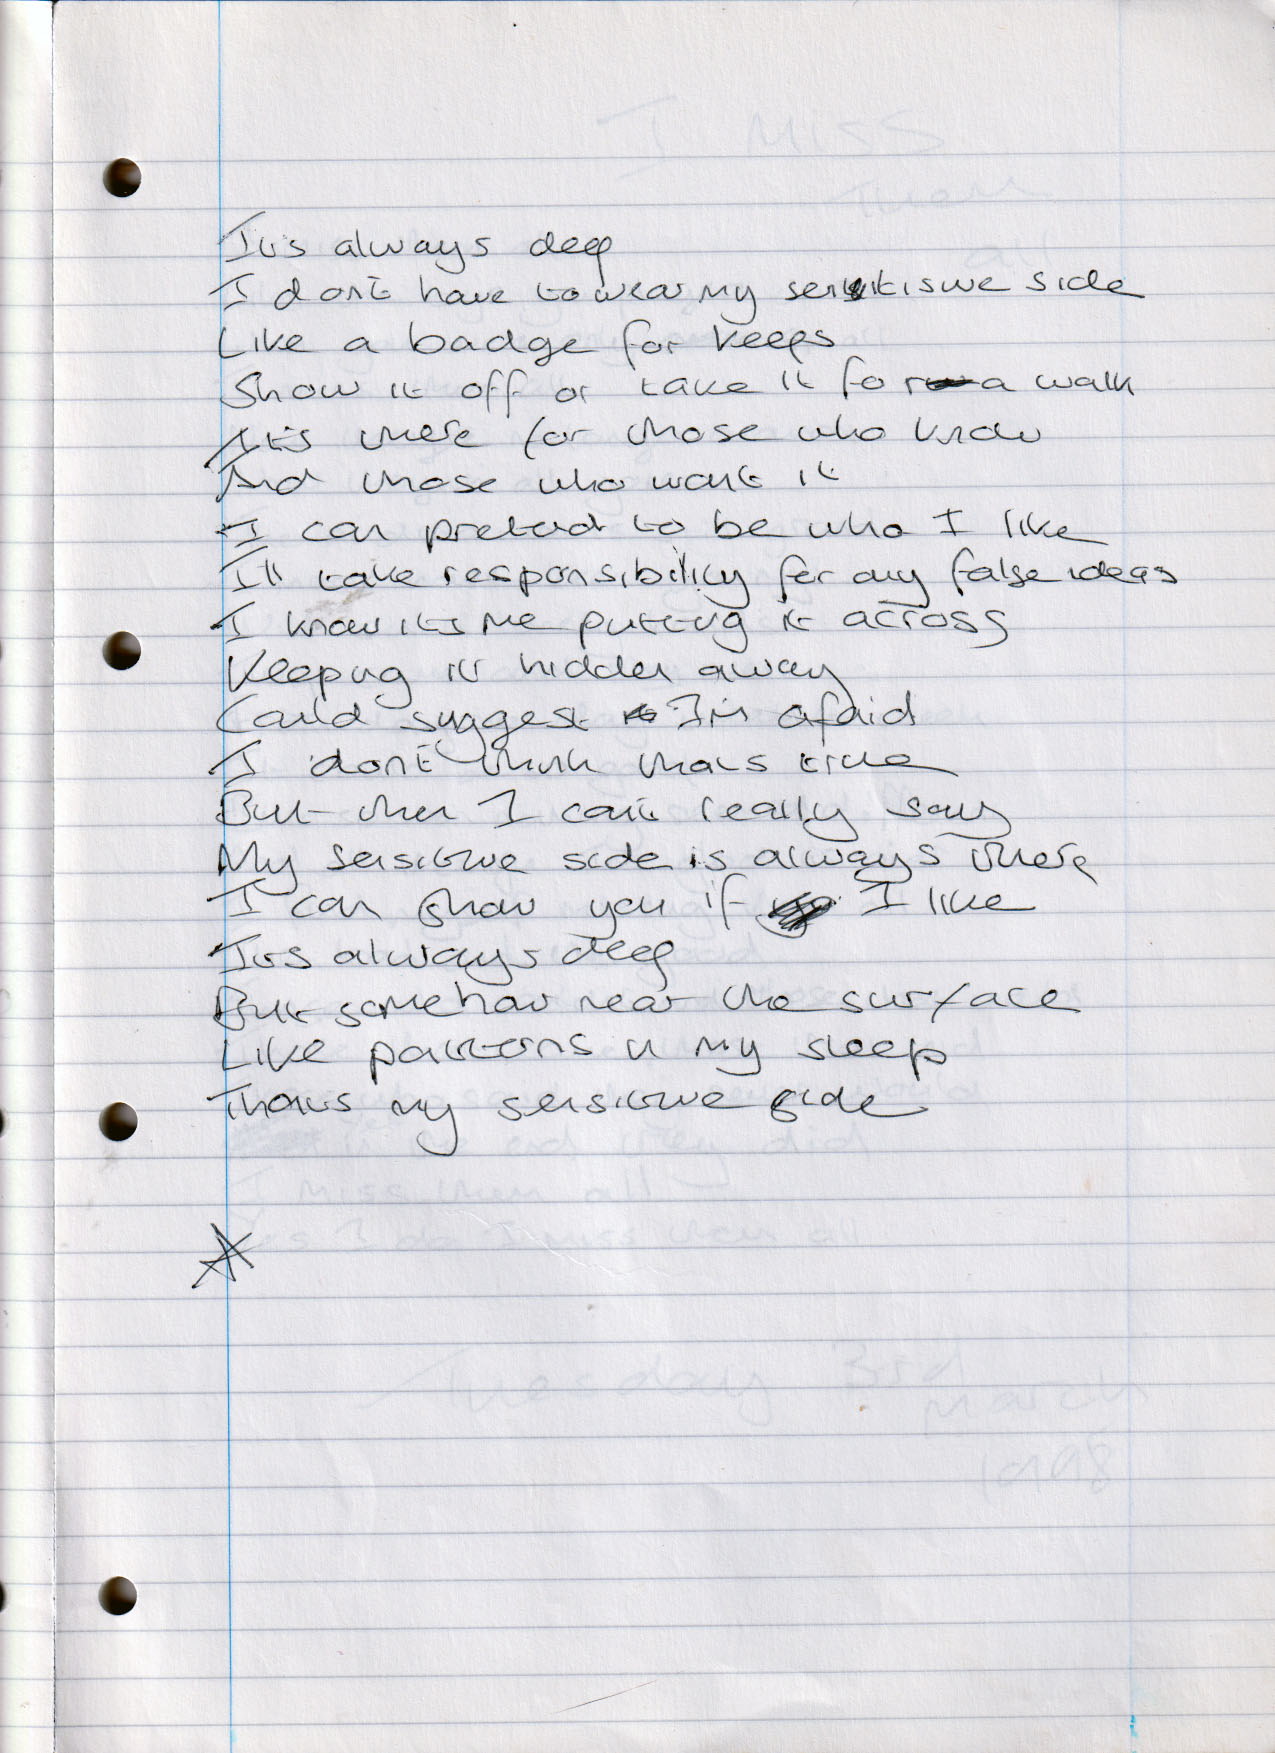 It's always deep
I dont have to wear my sensitive side
Like a badge for keeps
Show it off or take it for a walk
It's there for those who know
And those who want it
I can pretend to be who I like
I'll take responsibility for any false ideas
I know its me putting it across
Keeping it hidden away
Could suggest I'm afaid
I dont think thats true
But then I cant really say
My sensitive side is always there
I can show you if I like
Its always deep
But somehow near the surface
Like patterns in my sleep
Thats my sensitive side